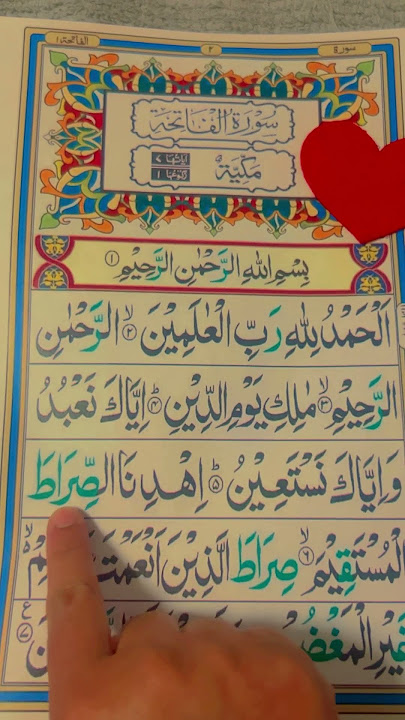 الفاتحة ١ ٢ سورة
سُوْرَةُ الْفَاتِحَةِ
مَكِّيَّةٌ
اٰيَاتُهَا ٧
رُكُوْعُهَا ١
بِسْمِ اللّٰهِ الرَّحْمٰنِ الرَّحِيْمِ ١
اَلْحَمْدُ لِلّٰهِ رَبِّ الْعٰلَمِيْنَ ۙ٢ الرَّحْمٰنِ
الرَّحِيْمِ ۙ٣ مٰلِكِ يَوْمِ الدِّيْنِ ؕ٤ اِيَّاكَ نَعْبُدُ
وَاِيَّاكَ نَسْتَعِيْنُ ؕ٥ اِهْدِنَا الصِّرَاطَ
الْمُسْتَقِيْمَ ۙ٦ صِرَاطَ الَّذِيْنَ اَنْعَمْتَ
غَيْرِ الْمَغْضُ ٧